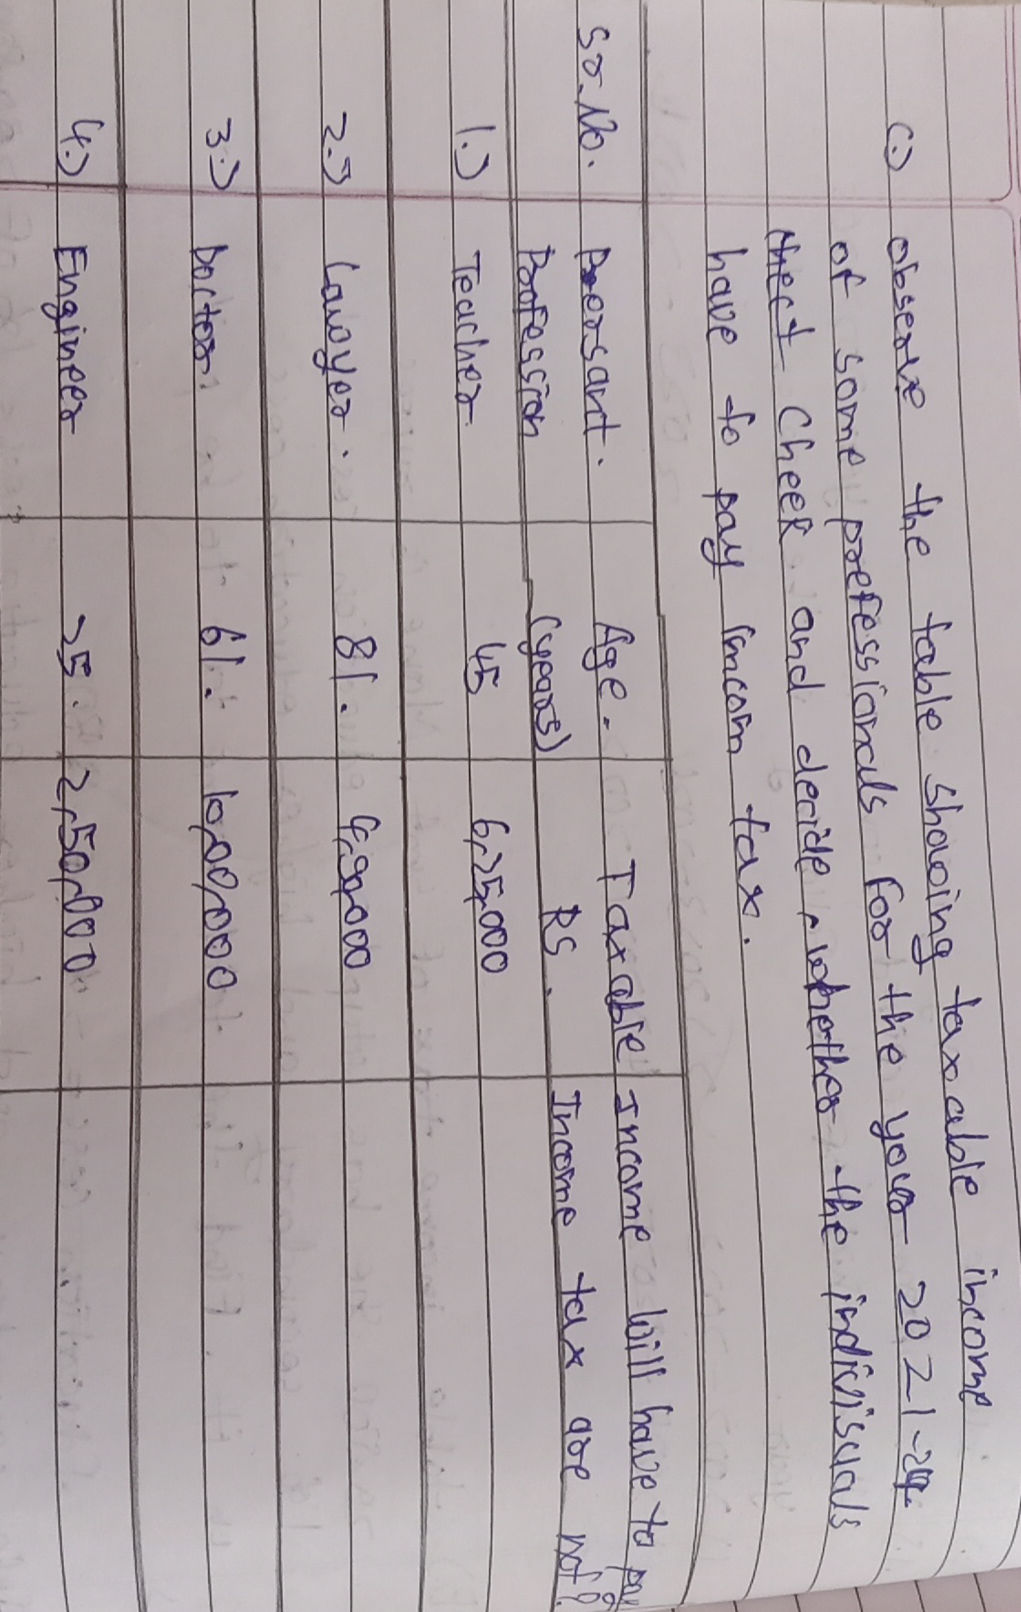 C.) observe the table showing taxable income
of some prefessionals for the year 2021-24
thect Cheek and decide whether the indivisuals
have to pay Imcom tax.
Sr.No. Peersant. Age. Taxable Income will have to pay
Profession (years) RS. Income tax are not?
1.) Teacher 45 6,25,000
2.) Lawyer. 81. 4,90,000
3.) Doctor. 61. 10,00,000
4.) Engineer 25. 2,50,000